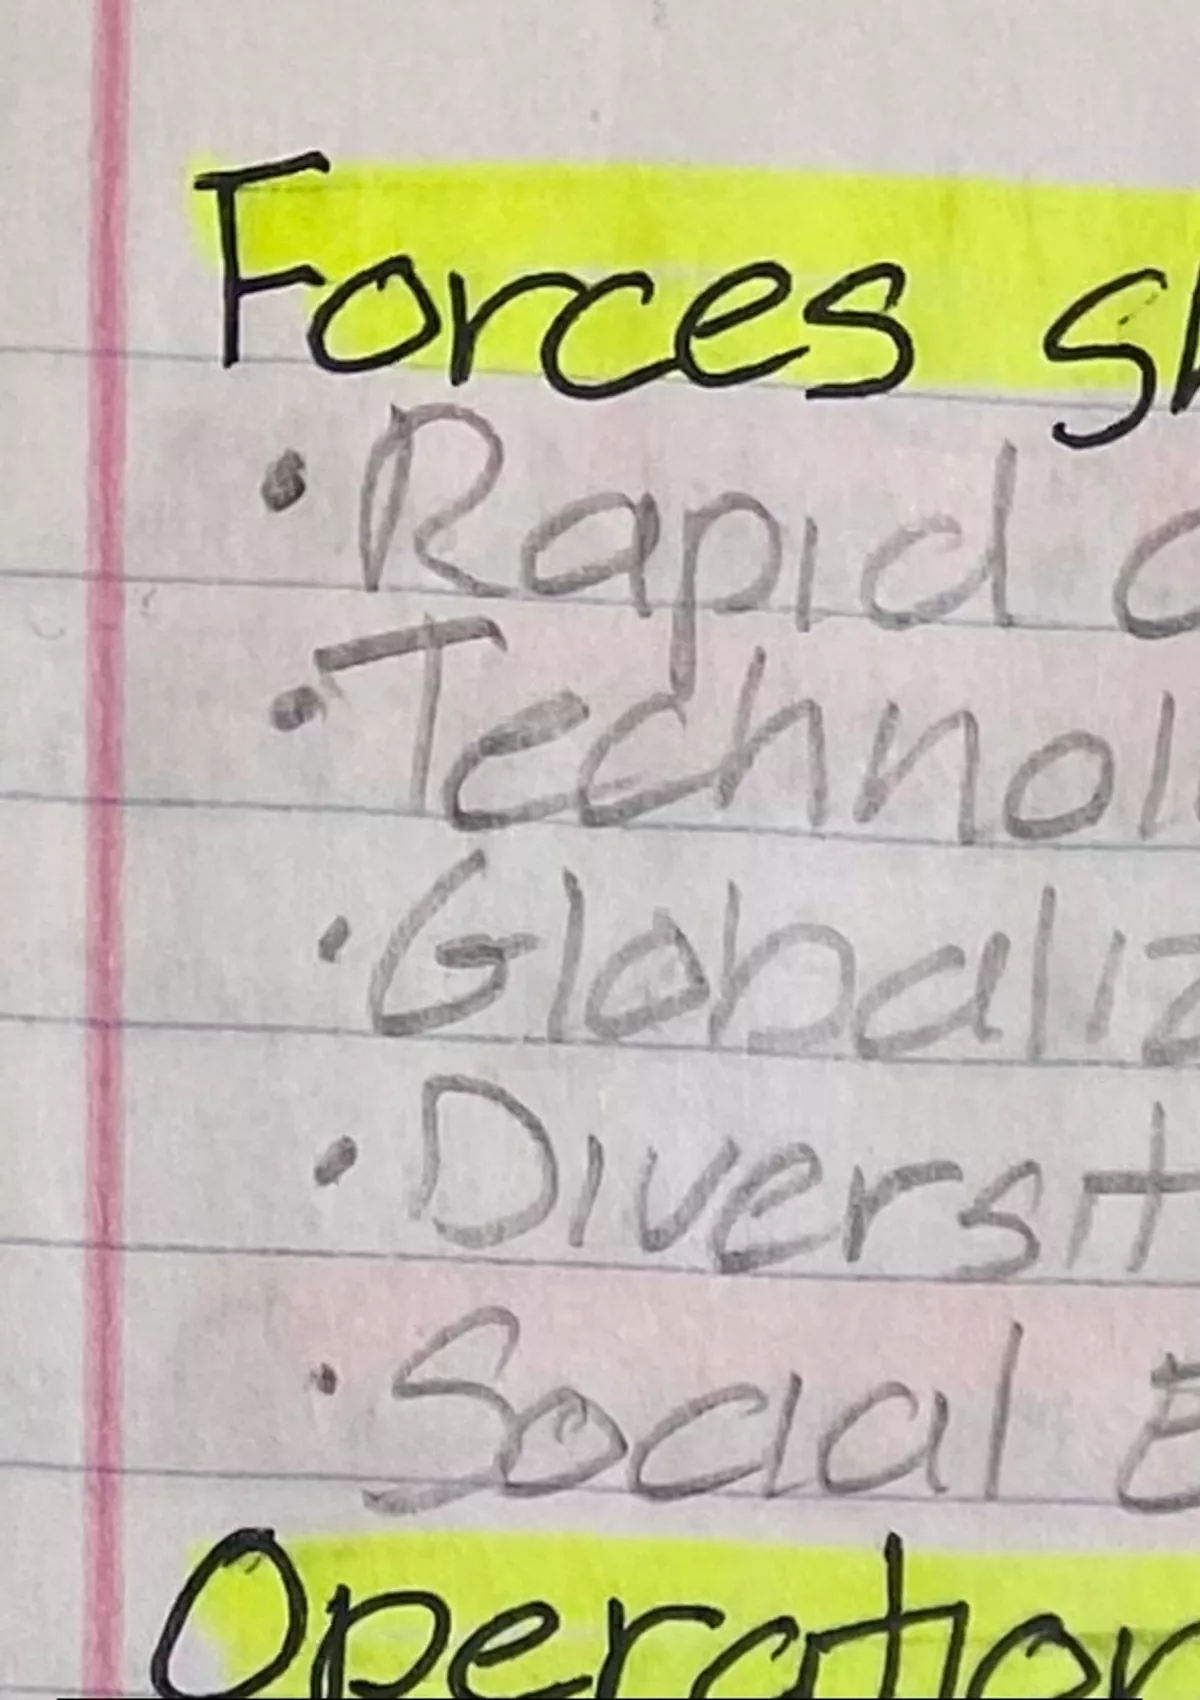 Forces sh
• Rapid c
• Technol
• Globaliz
• Diversit
• Social E
Operation